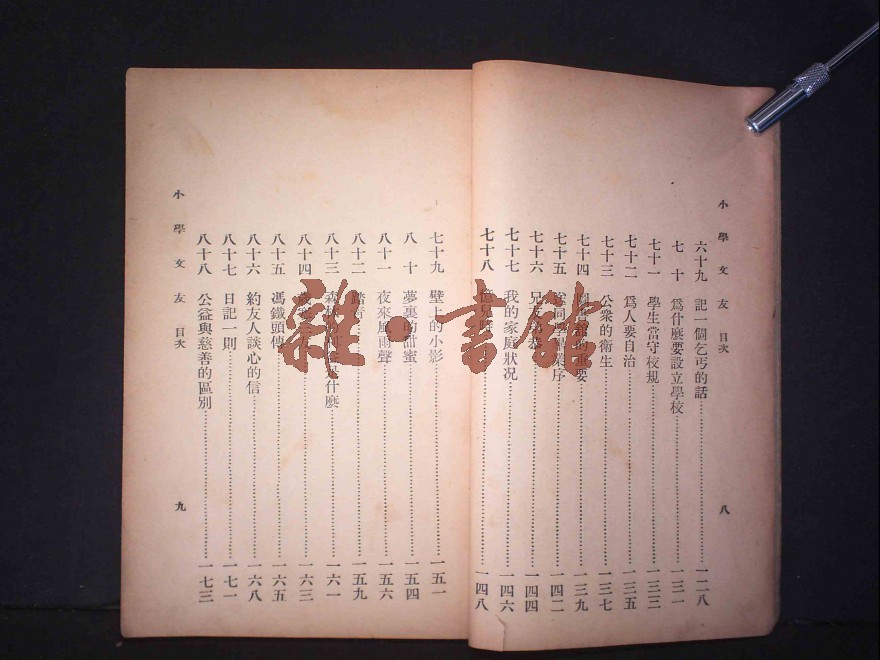 小學文友 目次
六十九 記一個乞丐的話 一二八
七十 爲什麼要設立學校 一三一
七十一 學生當守校規 一三三
七十二 爲人要自治 一三五
七十三 公衆的衛生 一三七
七十四 的重要 一三九
七十五 送同學畢業序 一四二
七十六 兄友弟恭 一四四
七十七 我的家庭狀况 一四六
七十八 一四八
八
七十九 壁上的小影 一五一
八十 夢裏的甜蜜 一五四
八十一 夜來風雨聲 一五六
八十二 踏青 一五九
八十三 森林 是什麼 一六一
八十四 一六三
八十五 馮鐵頭傳 一六五
八十六 約友人談心的信 一六八
八十七 日記一則 一七一
八十八 公益與慈善的區別 一七三
小學文友 目次
九
雜·書館